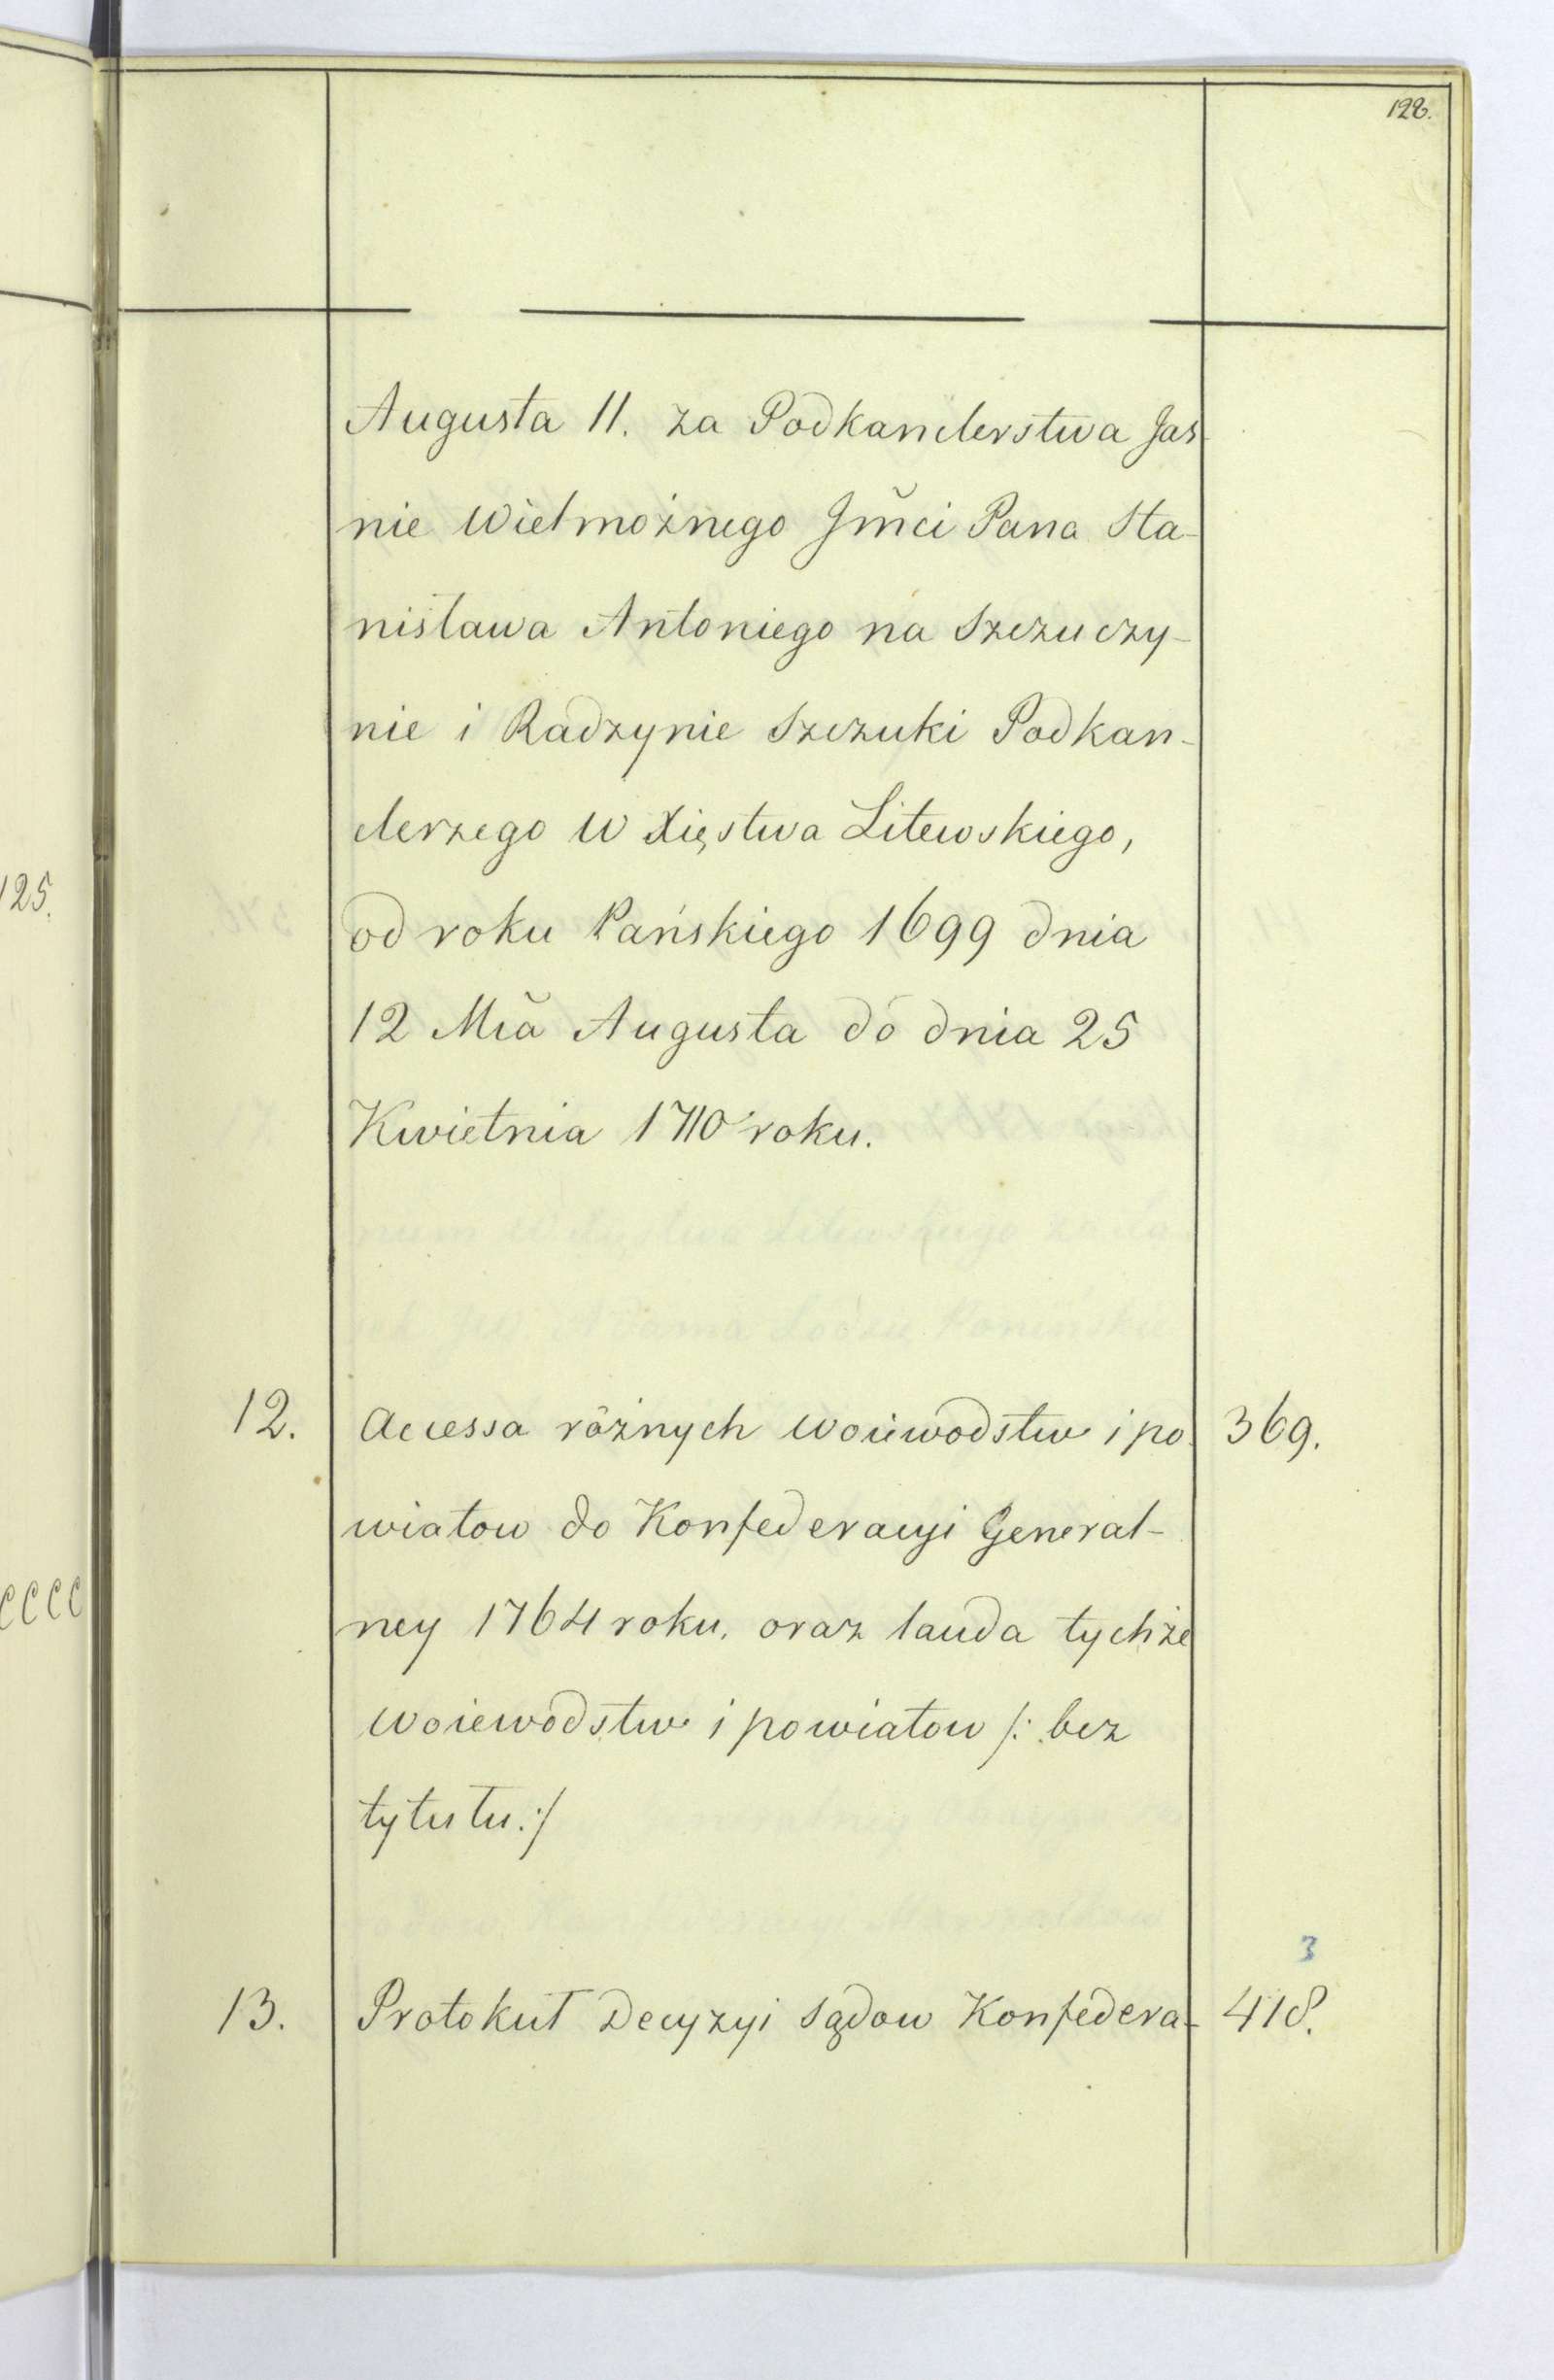 128.
Augusta II. za Podkanclerstwa Jas-
nie Wielmożnego Jm̃ci Pana Sta-
nisława Antoniego na Szczuczy-
nie i Radzynie Szczuki Podkan-
clerzego W Xięstwa Litewskiego,
od roku Pańskiego 1699 dnia
12 Mĩa Augusta do dnia 25
Kwietnia 1710 roku.
12. Accessa róznych woiewodstw i po- 369.
wiatow do Konfederacyi General-
ney 1764 roku. oraz lauda tychże
woiewodstw i powiatow /: bez
tytułu :/
3
13. Protokuł Decyzyi Sądow Konfedera- 418.
125.
CCCC